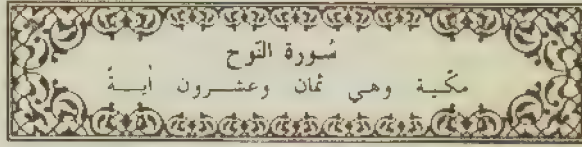 سُورة النّوح
مكّية وهي ثمان وعشرون أية